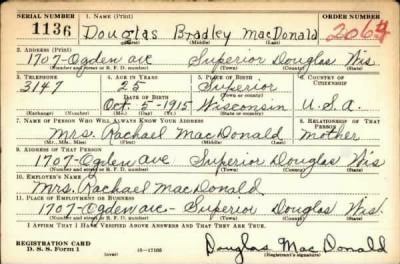 SERIAL NUMBER 1. NAME (Print) ORDER NUMBER
1136 Douglas Bradley MacDonald 2064
(First) (Middle) (Last)
2. ADDRESS (Print)
1707-Ogden ave Superior Douglas Wis
(Number and street or R. F. D. number) (Town) (County) (State)
3. TELEPHONE 4. AGE IN YEARS 5. PLACE OF BIRTH 6. COUNTRY OF CITIZENSHIP
3147 25 Superior
DATE OF BIRTH (Town or county)
Oct. 5-1915 Wisconsin U.S.A.
(Exchange) (Number) (Mo.) (Day) (Yr.) (State or country)
7. NAME OF PERSON WHO WILL ALWAYS KNOW YOUR ADDRESS 8. RELATIONSHIP OF THAT PERSON
Mrs. Rachael MacDonald Mother
(Mr., Mrs., Miss) (First) (Middle) (Last)
9. ADDRESS OF THAT PERSON
1707-Ogden Ave Superior Douglas Wis
(Number and street or R. F. D. number) (Town) (County) (State)
10. EMPLOYER'S NAME
Mrs. Rachael MacDonald
11. PLACE OF EMPLOYMENT OR BUSINESS
1707-Ogden ave- Superior Douglas Wis.
(Number and street or R. F. D. number) (Town) (County) (State)
I AFFIRM THAT I HAVE VERIFIED ABOVE ANSWERS AND THAT THEY ARE TRUE.
REGISTRATION CARD
D. S. S. Form 1 (over) Douglas Mac Donald
(Registrant's signature)